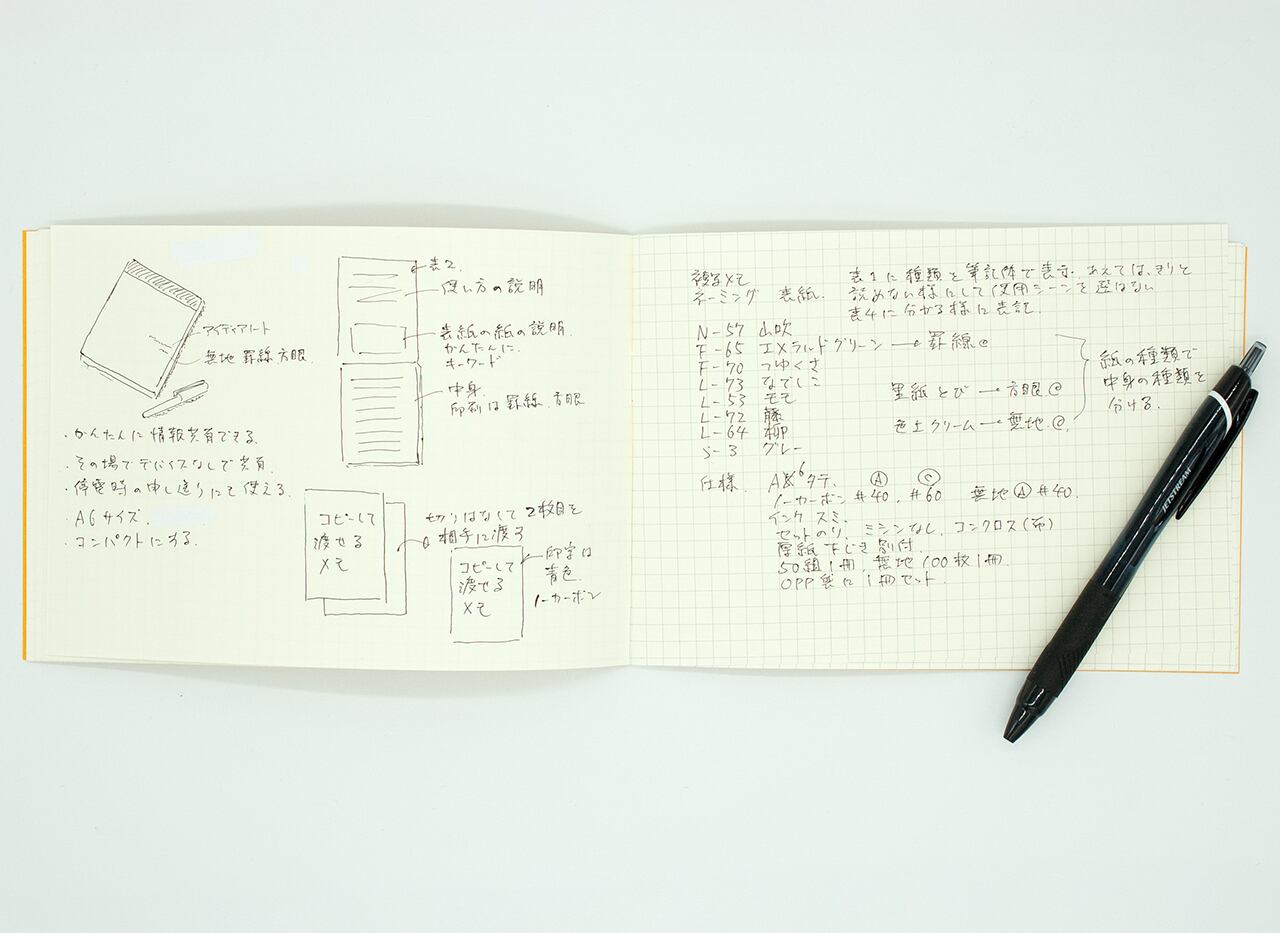 アイディアノート
無地 罫線 方眼
・かんたんに情報共有できる.
・その場でデバイスなしで共有.
・停電時の申し送りにて使える.
・A6サイズ.
・コンパクトにする.
表2.
使い方の説明
表紙の紙の説明.
かんたんに.
キーワード
中身
印刷は罫線、方眼
コピーして
渡せる
メモ
切りはなして2枚目を
相手に渡す
コピーして
渡せる
メモ
印字は
青色
ノーカーボン
複写メモ
ネーミング 表紙.
表1に種類と筆記帳で表示. あえてはっきりと
読めない様にして使用シーンを選ばない
表4に分かる様に表記.
N-57 山吹
F-65 エメラルドグリーン → 罫線
F-70 つゆくさ
L-73 なでしこ
里紙 とび → 方眼
L-53 モモ
L-72 藤
色上クリーム → 無地
L-64 柳
S-3 グレー
紙の種類で
中身の種類を
分ける.
仕様. A6 タテ. Ⓐ Ⓒ
ノーカーボン #40. #60 無地Ⓐ#40.
インク スミ.
セットのり. ミシンなし. コンクロス(布)
厚紙 下じき 別付.
50組1冊. 無地100枚1冊.
OPP袋に1冊セット.
JETSTREAM